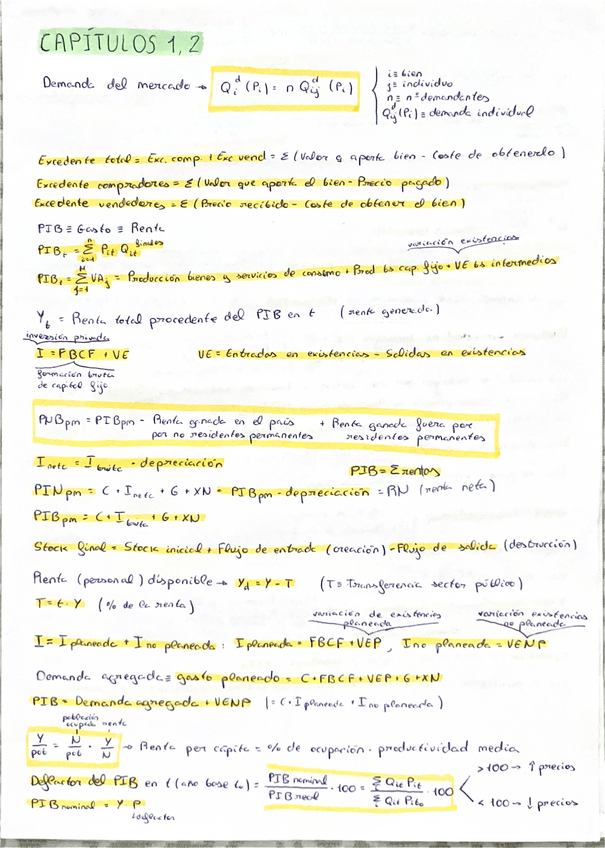 CAPÍTULOS 1, 2
Demanda del mercado → Qᵢᵈ (Pᵢ) = n Qᵢⱼᵈ (Pᵢ)
i ≡ bien
j ≡ individuo
n ≡ nº demandantes
Qᵢⱼᵈ(Pᵢ) ≡ demanda individual
Excedente total = Exc. comp. + Exc vend = Σ (Valor q aporta bien - Coste de obtenerlo)
Excedente compradores = Σ (Valor que aporta el bien - Precio pagado)
Excedente vendedores = Σ (Precio recibido - Coste de obtener el bien)
PIB ≡ Gasto ≡ Renta
PIBₜ = Σ Pit Qit finales
variación existencias
PIBₜ = Σ VAj = Producción bienes y servicios de consumo + Prod bs cap. fijo + VE bs intermedios
Yₜ = Renta total procedente del PIB en t (renta generada)
inversión privada
I = FBCF + VE VE = Entradas en existencias - Salidas en existencias
formación bruta
de capital fijo
PNBpm = PIBpm - Renta ganada en el país + Renta ganada fuera por
por no residentes permanentes residentes permanentes
I neta = I bruta - depreciación
PIB = Σ rentas
PINpm = C + I neta + G + XN = PIBpm - depreciación = RN (renta neta)
PIBpm = C + I bruta + G + XN
Stock final = Stock inicial + Flujo de entrada (creación) - Flujo de salida (destrucción)
Renta (personal) disponible → Yd = Y - T (T ≡ Transferencia sector público)
T = t · Y (% de la renta)
variación de existencias planeada
variación existencias no planeada
I = I planeada + I no planeada : I planeada = FBCF + VEP, I no planeada = VENP
Demanda agregada ≡ gasto planeado = C + FBCF + VEP + G + XN
PIB = Demanda agregada + VENP (= C + I planeada + I no planeada)
población ocupada renta
Y/pob = N/pob · Y/N → Renta per cápita = % de ocupación · productividad media
Deflactor del PIB en t (año base t₀) = PIB nominal / PIB real · 100 = Σ Qit Pit / Σ Qit Pit₀ · 100
> 100 → ↑ precios
< 100 → ↓ precios
PIB nominal = Y P
↳ deflactor